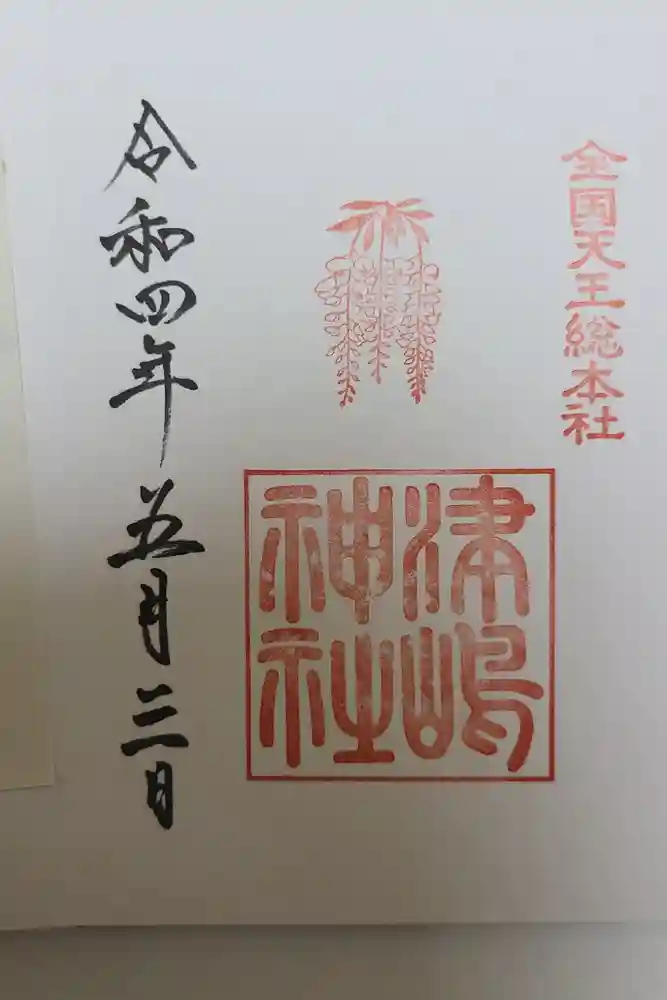 全国天王総本社
津嶋
神社
令和四年五月三日